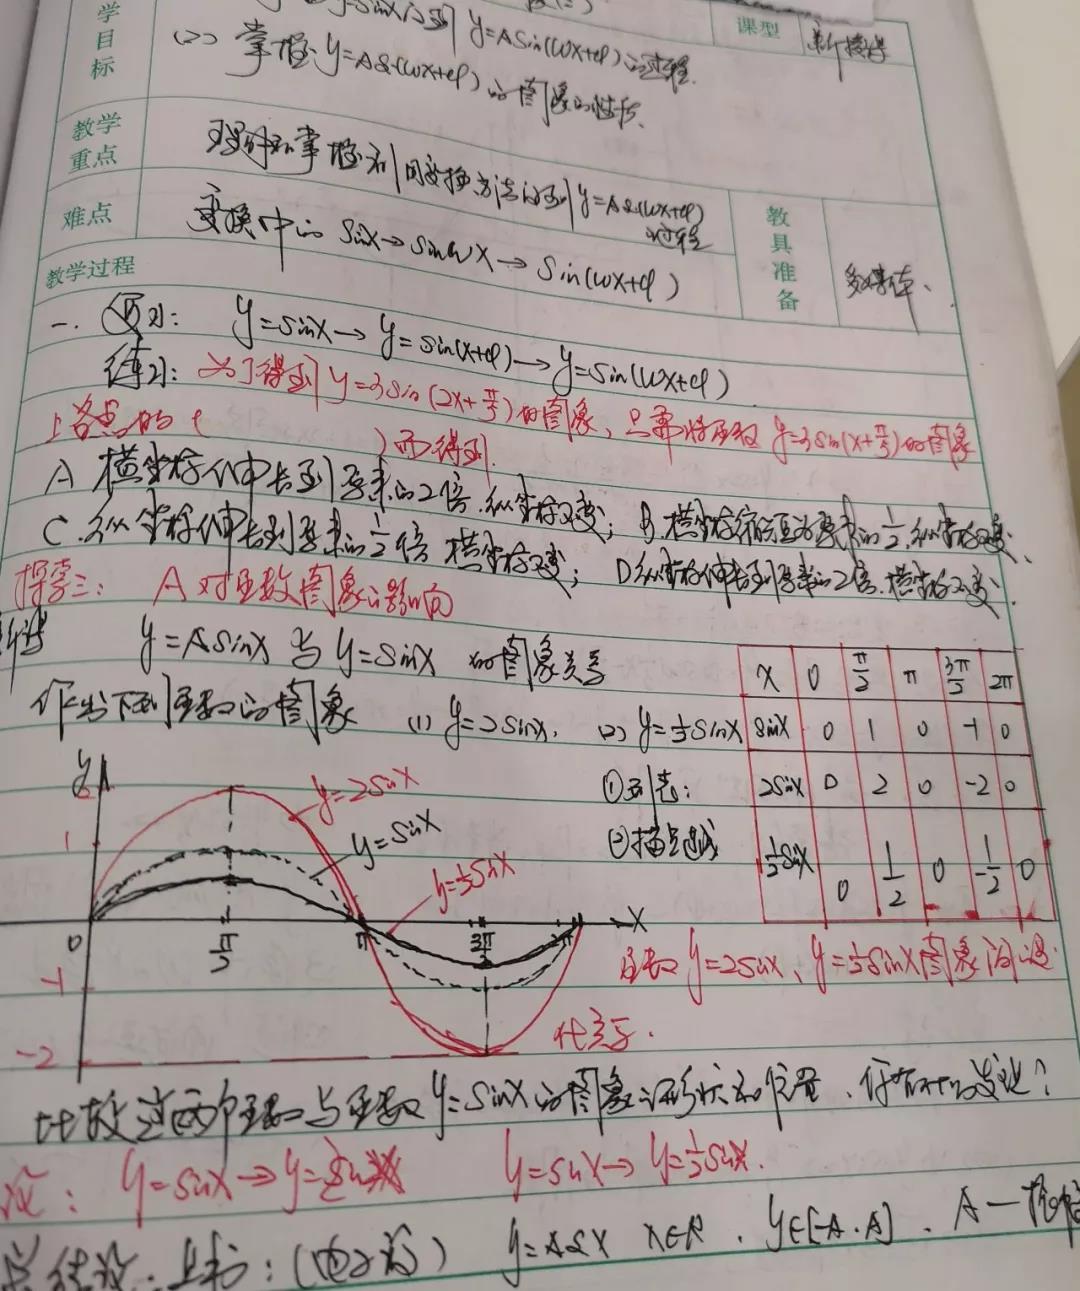 学目标
y=sinx得到y=Asin(ωx+φ)的过程.
课型
新授课
(2) 掌握y=A sin(ωx+φ)的图象的性质.
教学重点
理解和掌握利用变换方法得到y=A sin(ωx+φ)过程
难点
变换中的 sinx→sinωx→sin(ωx+φ)
教具准备
多媒体、
教学过程
一. 复习: y=sinx→y=sin(x+φ)→y=sin(ωx+φ)
练习: 为了得到y=3sin(2x+π/5)的图象,只需将函数y=3sin(x+π/5)的图象
上各点的( )而得到.
A 横坐标伸长到原来的2倍.纵坐标不变; B.横坐标缩短为原来的1/2.纵坐标不变、
C.纵坐标伸长到原来的1/2倍 横坐标不变; D纵坐标伸长到原来的2倍.横坐标不变.
探究三: A对函数图象的影响
y=Asinx与y=sinx的图象关系
作出下列函数的图象 (1) y=2sinx, (2) y=1/2sinx
①列表:
②描点连线
x 0 π/2 π 3π/2 2π
sinx 0 1 0 -1 0
2sinx 0 2 0 -2 0
1/2sinx 0 1/2 0 -1/2 0
y
y=2sinx
y=sinx
y=1/2sinx
1
0 π/2 π 3π/2 2π x
-1
-2
函数y=2sinx、y=1/2sinx图象间的
关系.
比较这两个函数与函数y=sinx的图象的形状和位置、你有什么发现?
y=sinx→y=2sinx y=sinx→y=1/2sinx.
y=Asinx x∈R. y∈[-A.A]. A—振幅